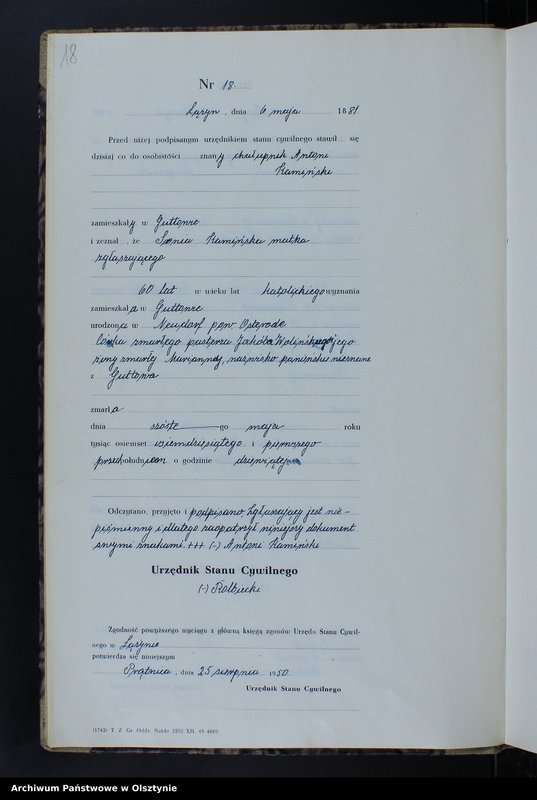 18
Nr 18
Łążyn, dnia 6 maja 1881
Przed niżej podpisanym urzędnikiem stanu cywilnego stawił się
dzisiaj co do osobistości znany chałupnik Antoni
Kamiński
zamieszkały w Guttowie
i zeznał, że Kamińska matka
zgłaszającego
60 lat w wieku lat katolickiego wyznania
zamieszkała w Guttowie
urodzona w Neudorf pow. Osterode
córka zmarłego pasterza Jakóba Wolińskiego i jego
żony zmarłej Marianny, nazwisko panieńskie nieznane
z Guttowa
zmarła
dnia szóstego maja roku
tysiąc osiemset osiemdziesiątego i pierwszego
przedpołudniem o godzinie dziewiątej
Odczytano, przyjęto i podpisano. Zgłaszający jest nie-
piśmienny i dlatego zaopatrzył niniejszy dokument
swymi znakami. +++ (-) Antoni Kamiński
Urzędnik Stanu Cywilnego
(-)
Zgodność powyższego wyciągu z główną księgą zgonów Urzędu Stanu Cywil-
nego w Łążynie
potwierdza się niniejszym
Prątnica, dnia 25 sierpnia 1950
Urzędnik Stanu Cywilnego
(1742) T. Z. Gr. Oddz. Nakło 2202 XII. 49 4669
Archiwum Państwowe w Olsztynie